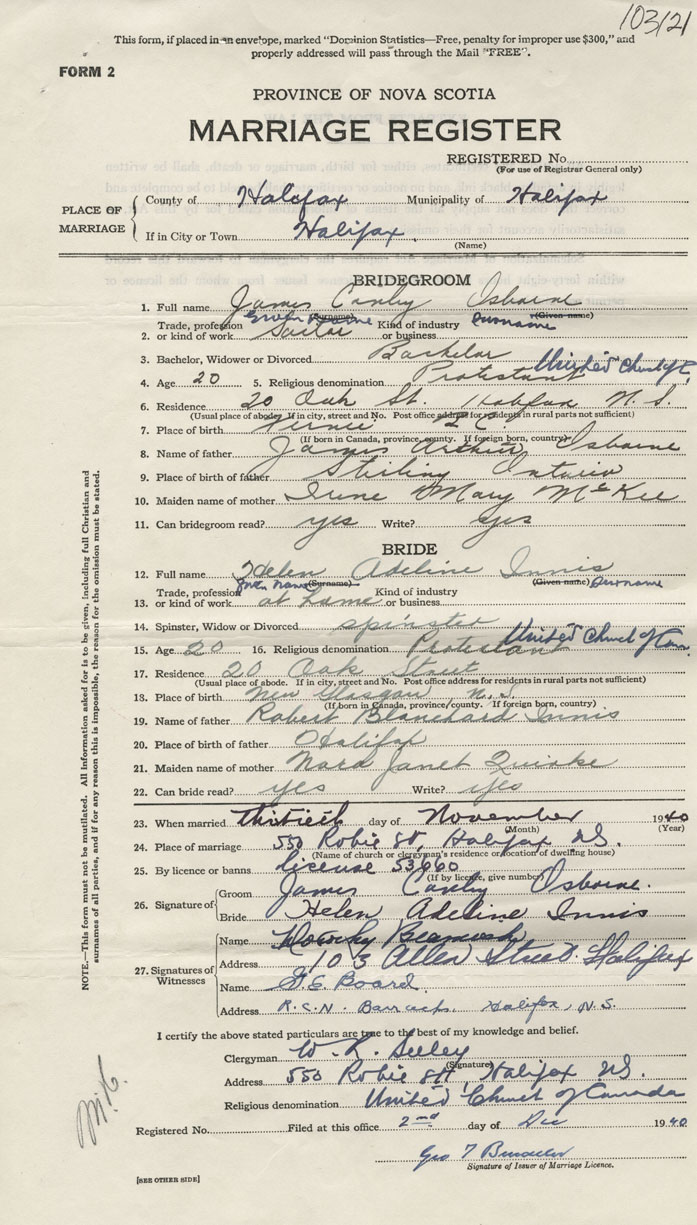 103/21
This form, if placed in an envelope, marked "Dominion Statistics—Free, penalty for improper use $300," and
properly addressed will pass through the Mail "FREE".
FORM 2
PROVINCE OF NOVA SCOTIA
MARRIAGE REGISTER
REGISTERED No.
(For use of Registrar General only)
PLACE OF MARRIAGE
County of Halifax Municipality of Halifax
If in City or Town Halifax.
(Name)
BRIDEGROOM
1. Full name James Conby Osborne
(Surname) (Given name)
Given Name Surname
Trade, profession Kind of industry
2. or kind of work Sailor or business
3. Bachelor, Widower or Divorced Bachelor
4. Age 20 5. Religious denomination Protestant United Church of C.
6. Residence 20 Oak St. Halifax N.S.
(Usual place of abode. If in city, street and No. Post office address for residents in rural parts not sufficient)
7. Place of birth Fernie B C
(If born in Canada, province, county. If foreign born, country)
8. Name of father James Arthur Osborne
9. Place of birth of father Stirling Ontario
10. Maiden name of mother Irene Mary McKee
11. Can bridegroom read? yes Write? yes
BRIDE
12. Full name Helen Adeline Innis
Given Name (Surname) (Given name) Surname
Trade, profession Kind of industry
13. or kind of work at home or business
14. Spinster, Widow or Divorced spinster
15. Age 20 16. Religious denomination Protestant United Church of Can.
17. Residence 20 Oak Street
(Usual place of abode. If in city, street and No. Post office address for residents in rural parts not sufficient)
18. Place of birth New Glasgow N.S.
(If born in Canada, province/county. If foreign born, country)
19. Name of father Robert Blanchard Innis
20. Place of birth of father Halifax
21. Maiden name of mother Nora Janet Quirke
22. Can bride read? yes Write? yes
23. When married thirtieth day of November 1940
(Month) (Year)
24. Place of marriage 550 Robie St, Halifax N.S.
(Name of church or clergyman's residence or location of dwelling house)
25. By licence or banns license 53660
(If by licence, give number)
26. Signature of
Groom James Conby Osborne.
Bride Helen Adeline Innis
27. Signatures of Witnesses
Name
Address 103 Allen Street Halifax
Name G.E. Board.
Address R.C.N. Barracks. Halifax, N.S.
I certify the above stated particulars are true to the best of my knowledge and belief.
Clergyman W. R. Seeley
(Signature)
Address 550 Robie St, Halifax N.S.
Religious denomination United Church of Canada
Registered No. Filed at this office 2nd day of Dec 1940
Signature of Issuer of Marriage Licence.
[SEE OTHER SIDE]
NOTE.—This form must not be mutilated. All information asked for is to be given, including full Christian and
surnames of all parties, and if for any reason this is impossible, the reason for the omission must be stated.